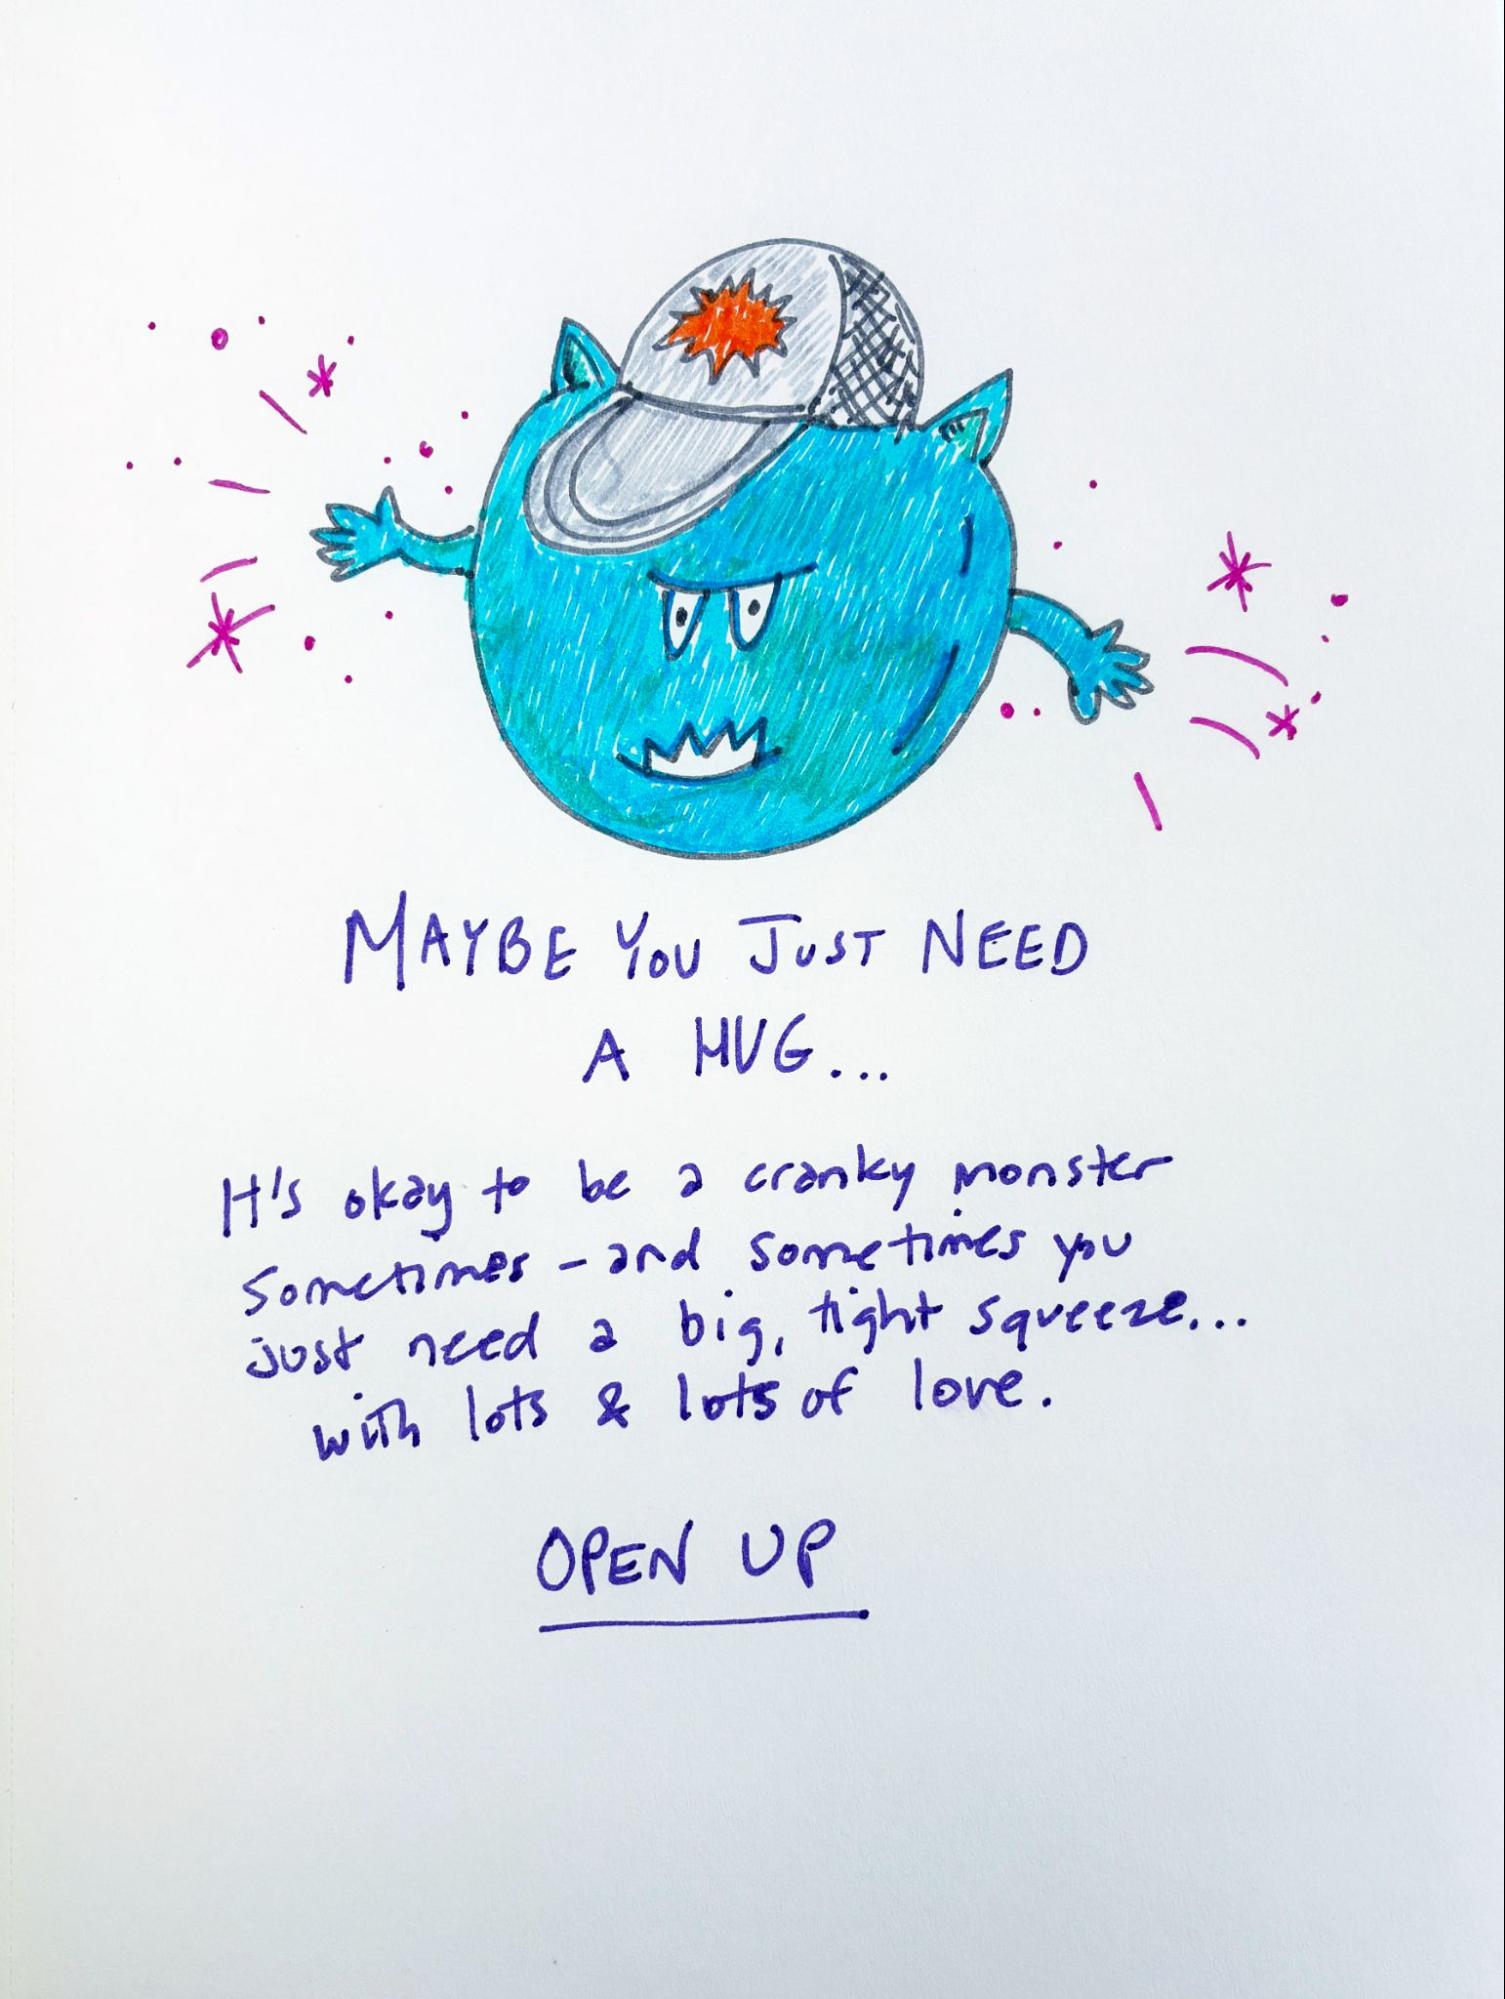 MAYBE YOU JUST NEED
A HUG...
It's okay to be a cranky monster
sometimes - and sometimes you
just need a big, tight squeeze...
with lots & lots of love.
OPEN UP